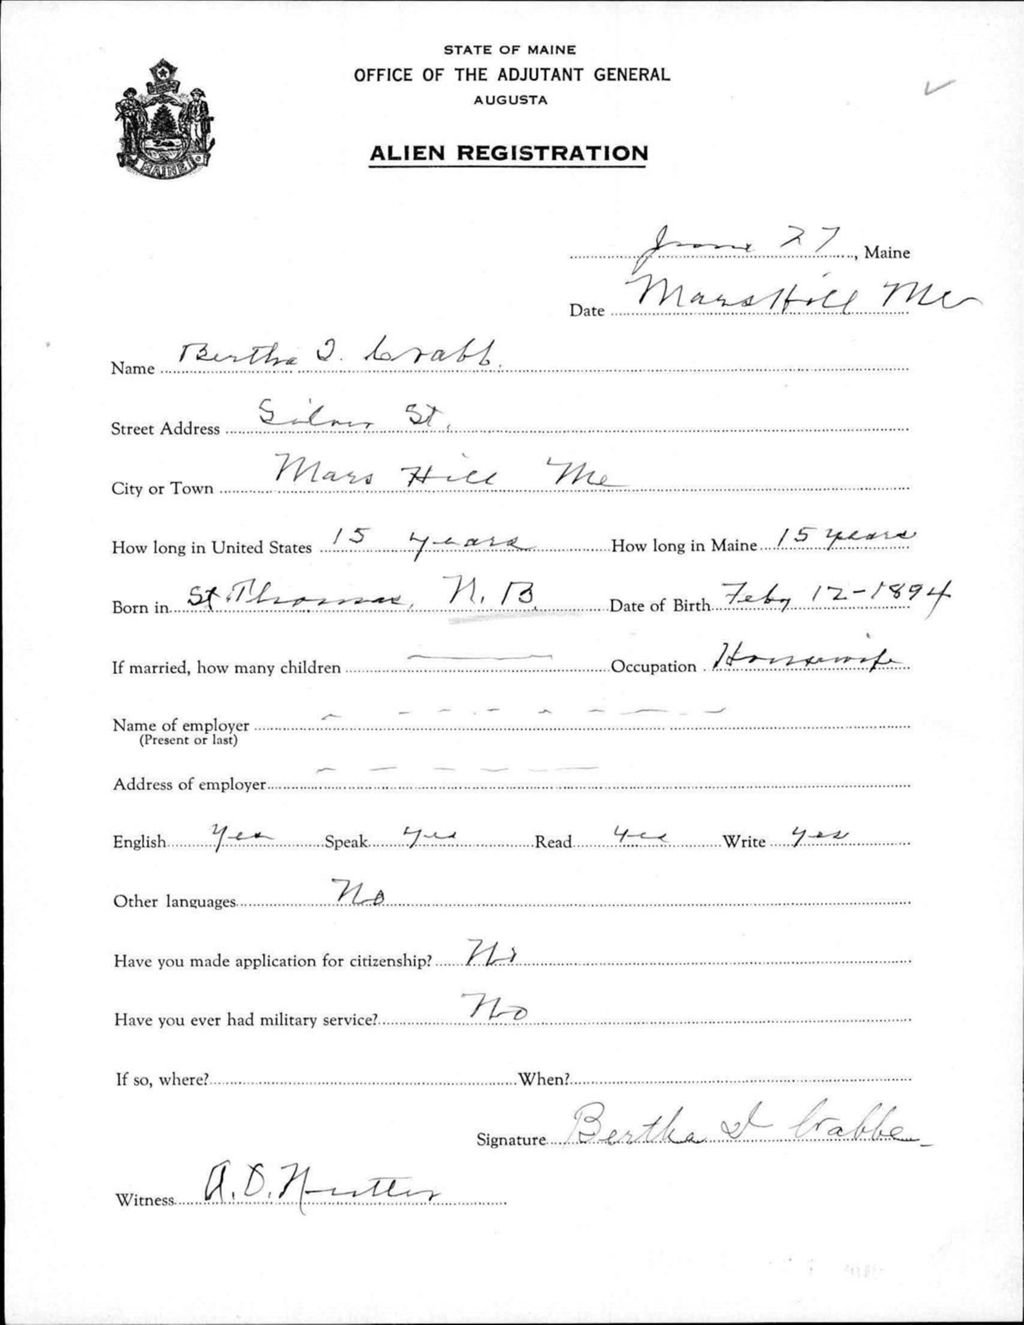 STATE OF MAINE
OFFICE OF THE ADJUTANT GENERAL
AUGUSTA
ALIEN REGISTRATION
MAINE
June 27, Maine
Date Mars Hill Me
Name Bertha I. Crabb.
Street Address Silver St.
City or Town Mars Hill Me
How long in United States 15 years How long in Maine 15 years
Born in St Thomas, N. B. Date of Birth Feby 12-1894
If married, how many children Occupation Housewife
Name of employer
(Present or last)
Address of employer
English Yes Speak Yes Read Yes Write Yes
Other languages No
Have you made application for citizenship? No
Have you ever had military service? No
If so, where? When?
Signature Bertha I Crabbe
Witness A. D. Nutter